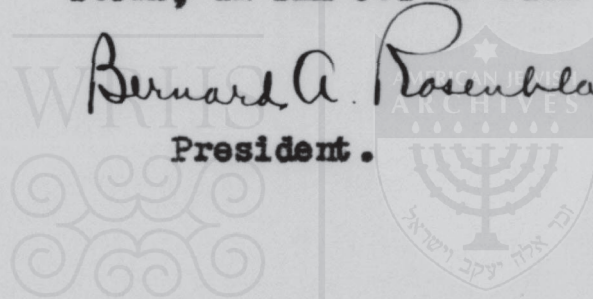 Bernard A. Rosenbla
President.
WRHS
AMERICAN JEWIS
ARCHIVES
זכר אלה יעקב וישראל